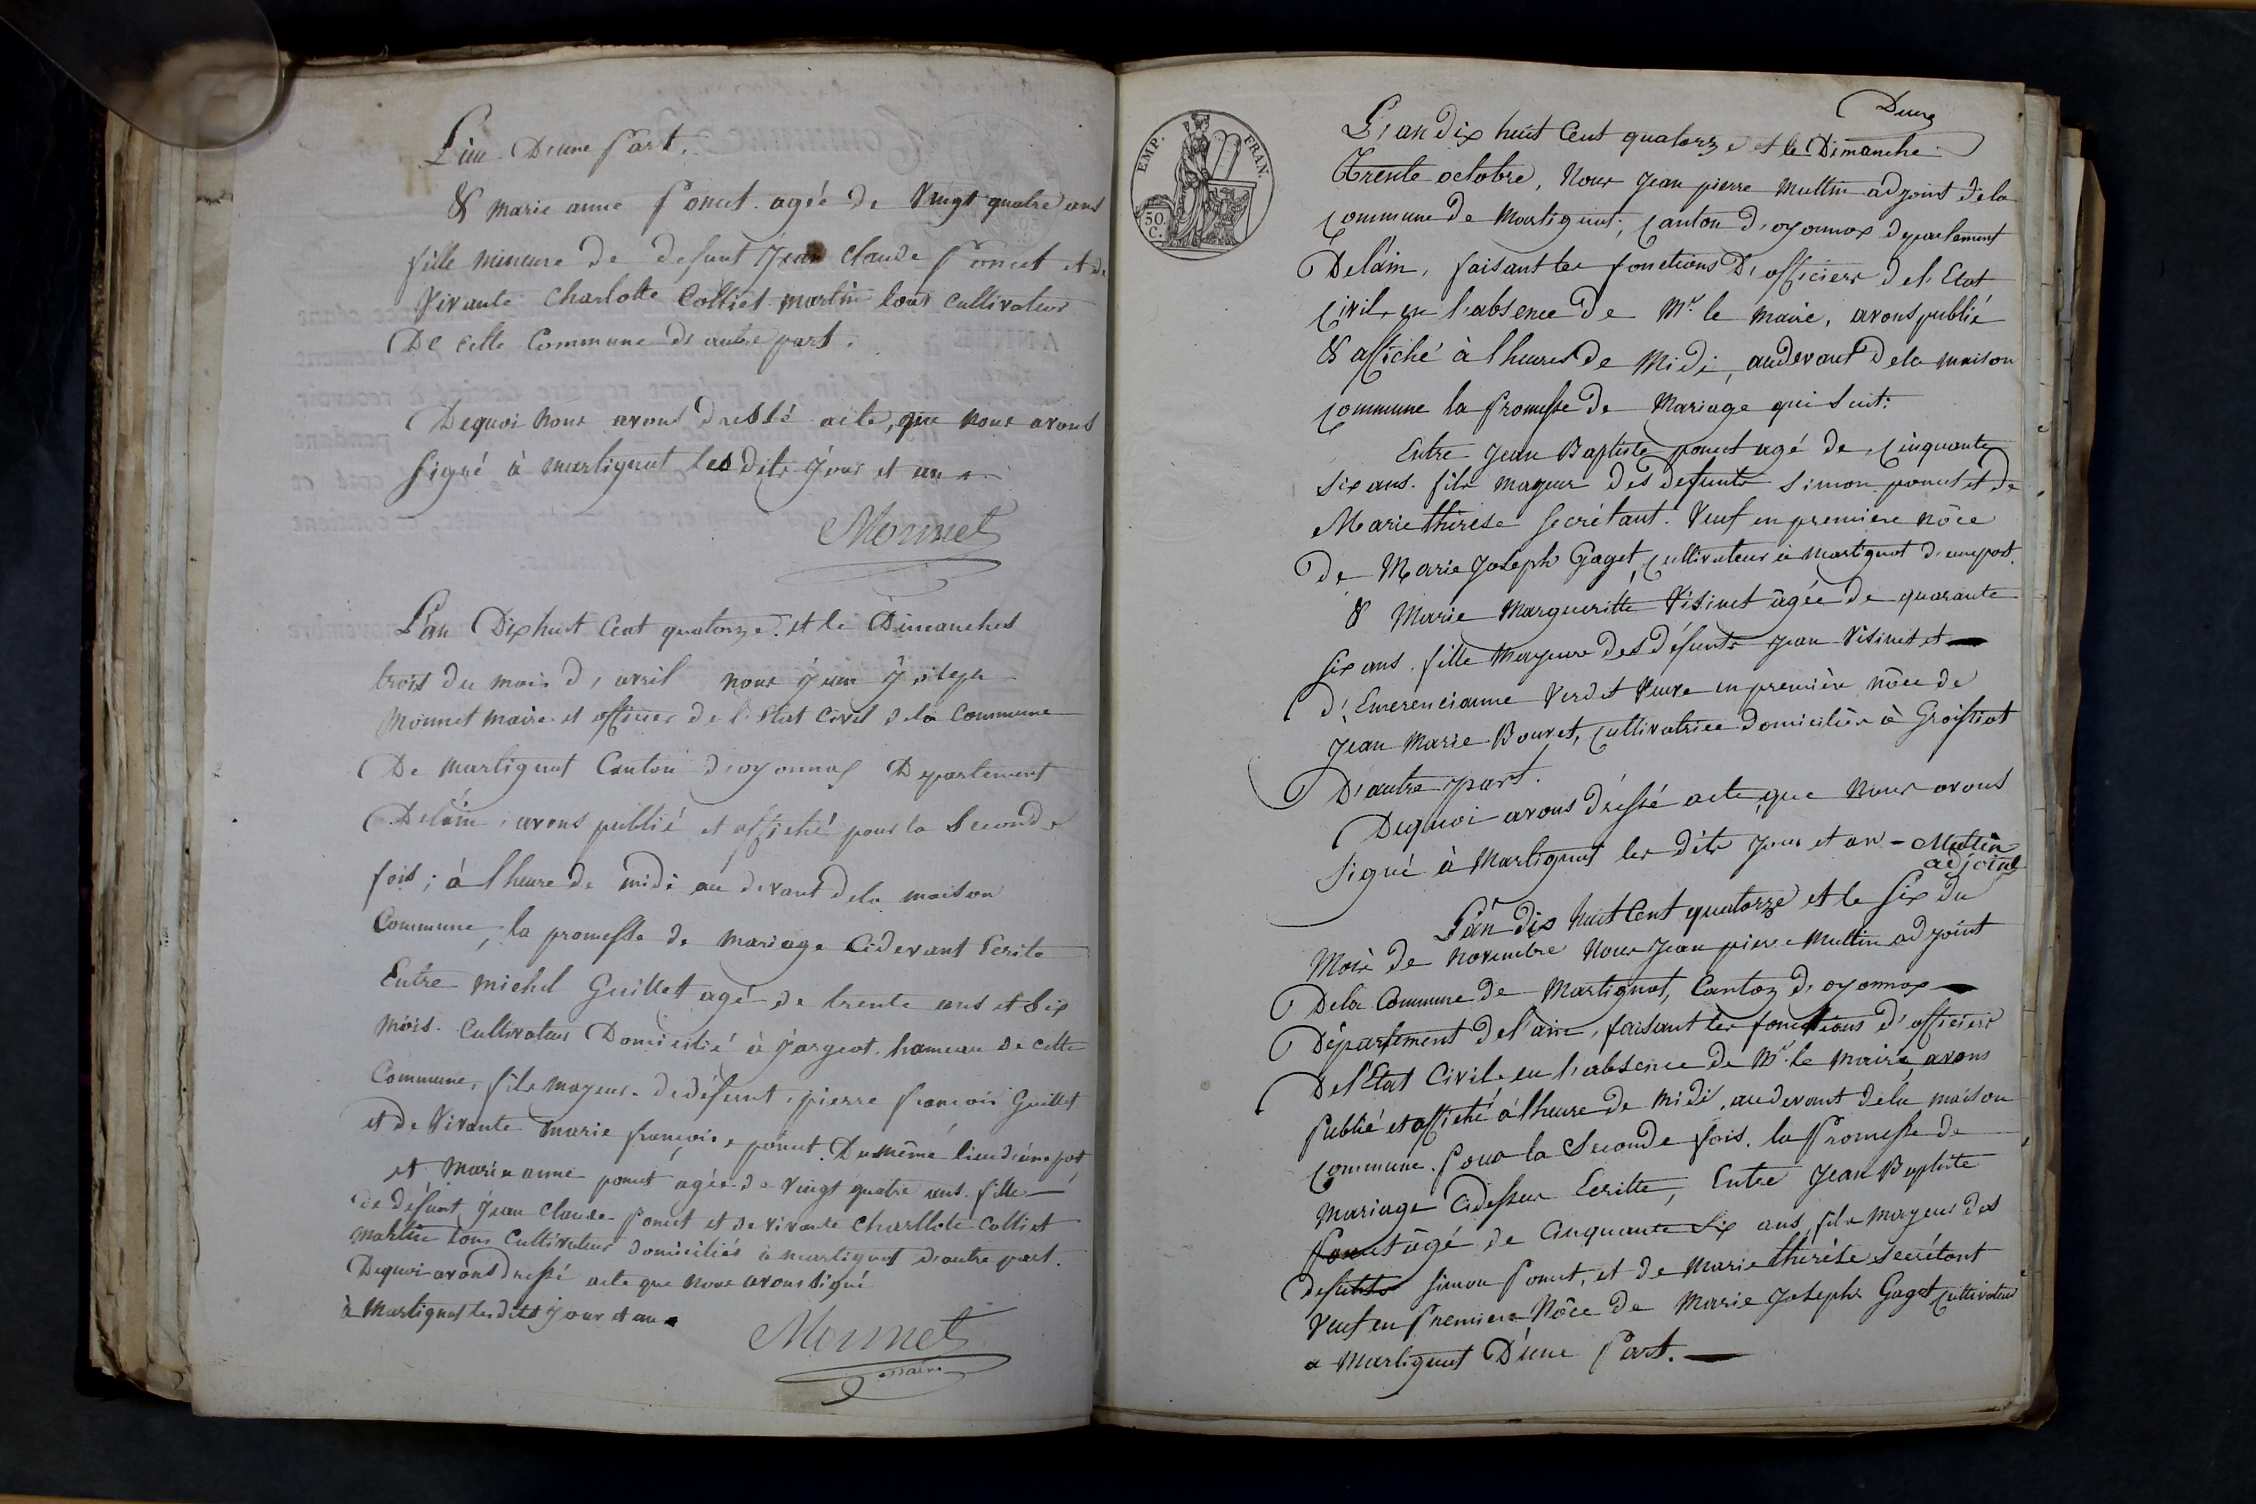 Lieu D'une Part.
& marie anne Poncet agée de Vingt quatre ans
fille mineure de defunt Jean claude Poncet et de
Vivante Charlotte Colliet martin tous cultivateur
De cette Commune d'autre part.
Dequoi nous avons dressé acte, que nous avons
signé à martignat les dits jour et an
Monnet
L'an Dix huit Cent quatorze et le Dimanches
trois du mois d'avril nous jean joseph
Monnet maire et officier de l'Etat Civil de la Commune
De martignat Canton d'oyonnax Departement
De l'ain, avons publié et affiché pour la Seconde
fois; à l'heure de midi au devant de la maison
Commune, la promesse de mariage Cidevant Ecrite
Entre michel Guillet agé de trente ans et Six
mois. Cultivateur Domicilié à Jargeat hameau de cette
Commune, fils mayeur de défunt pierre françois Guillet
et de Vivante marie françoise poncet Du même lieu d'une part
et Marie anne poncet agée de Vingt quatre ans fille
de défunt Jean Claude Poncet et de vivante Charllote Colliet
Martin tous Cultivateur domiciliés à martignat d'autre part.
Dequoi avons dressé acte que nous avons signé
à Martignat les dits jour et an
Monnet
maire
EMP. FRAN.
50.
C.
Deux
L'an Dix huit Cent quatorze et le Dimanche
Trente octobre, Nous Jean pierre Muttin adjoint de la
commune de Martignat, Canton d'oyonnax departement
De l'ain, faisant les fonctions D'officiers de l'Etat
Civil, en l'absence de Mr. le maire, avons publié
& affiché à l'heures de Midi, audevant De la maison
commune la Promesse de Mariage qui Suit:
Entre Jean Baptiste poncet agé de Cinquante
six ans. fils mayeur des defunts Simon poncet et De
Marie thérèse Secrétant. Veuf en premiere nôce
De Marie Joseph Gaget, cultivateur à Martignat d'une part.
& Marie Margueritte Visinet âgée de quarante
six ans. fille Mayeure des défunts Jean Visinet et
d'Emerencianne Verdet Veuve en première nôce de
Jean Marie Bouvet, cultivatrice domicilièe à Groissiat
D'autre part.
Dequoi avons dréssé acte, que Nous avons
signé à Martignat les dits jour et an - Muttin
adjoint
L'an dix huit Cent quatorze et le Six du
Mois de Novembre Nous Jean pierre Muttin adjoint
De la Commune de Martignat, Canton d'oyonnax
Département de l'ain, faisant les fonctions d'officiers
De l'Etat Civil en l'absence de Mr. le Maire, avons
Publié et affiché à l'heure de Midi. audevant de la maison
commune. Pour la Seconde fois. la Promesse de
Mariage Cidessus Ecritte, Entre Jean Baptiste
Poncet âgé de Cinquante Six ans, fils Mayeur des
défunts Simon Poncet, et de Marie thérèse Secrétant
Veuf en Premiere Nôce de Marie Joseph Gaget Cultivateur
a Martignat D'une Part.